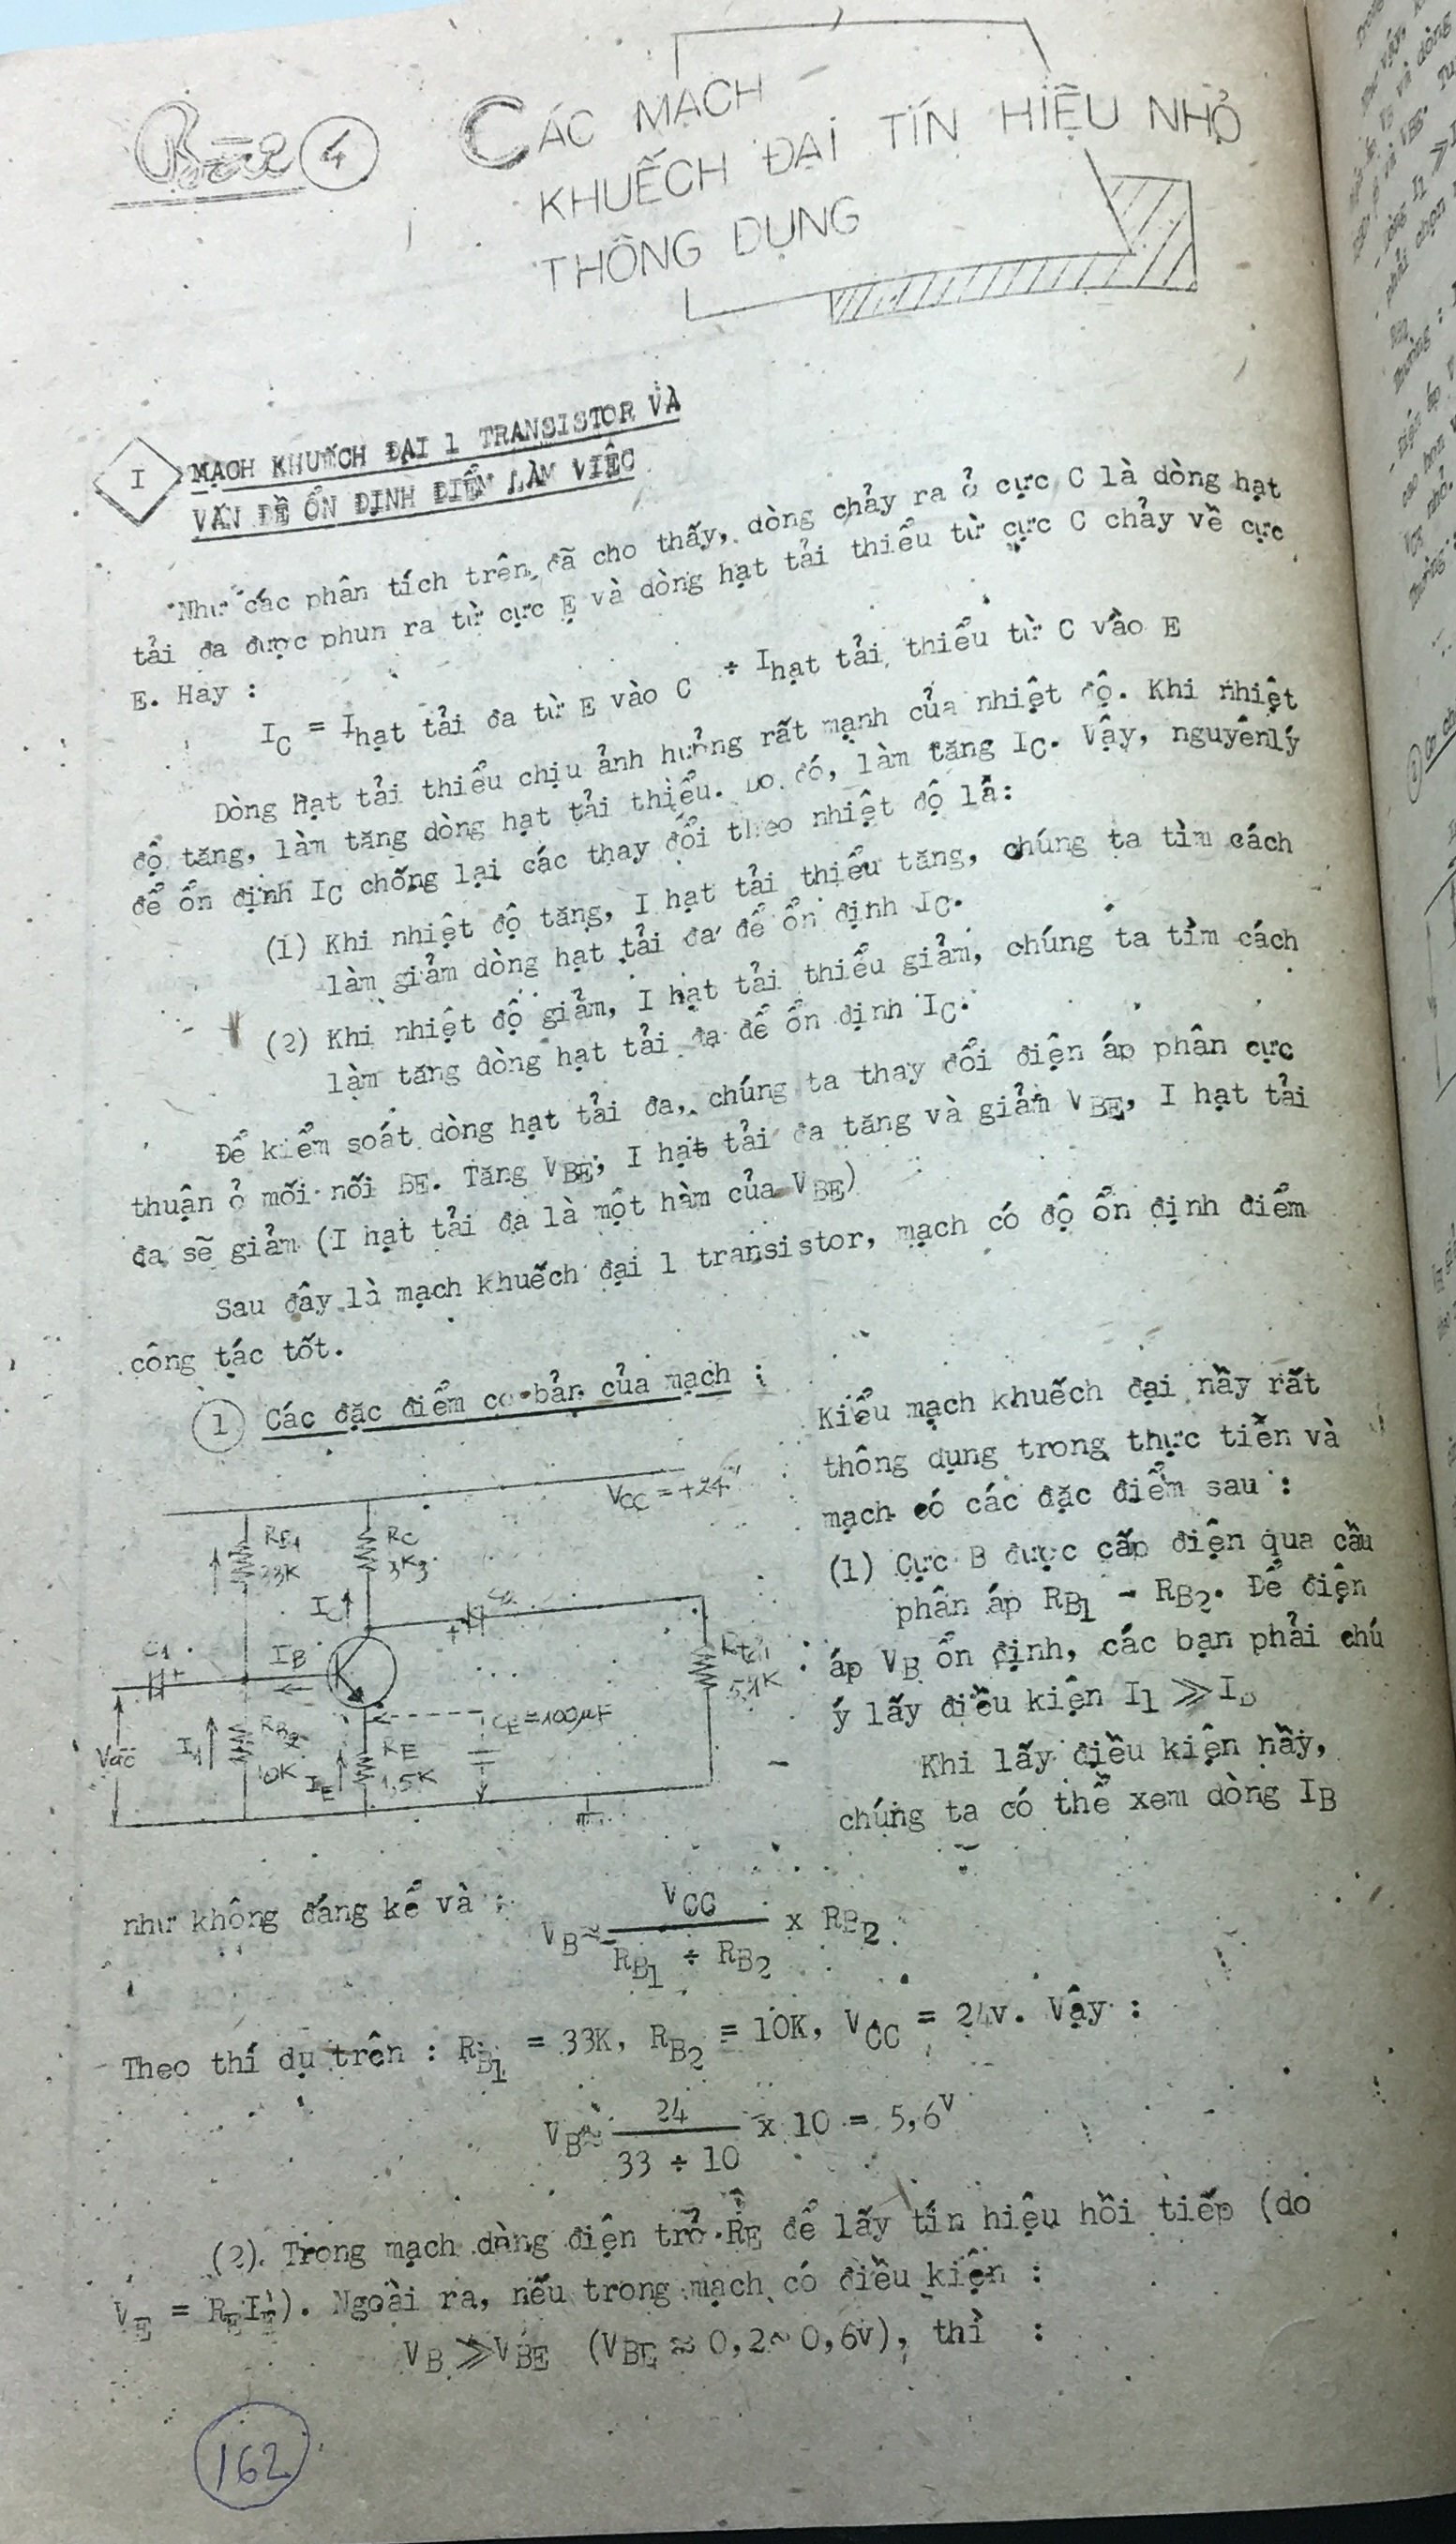 Bài 4
CÁC MẠCH
KHUẾCH ĐẠI TÍN HIỆU NHỎ
THÔNG DỤNG
I
MẠCH KHUẾCH ĐẠI 1 TRANSISTOR VÀ
VẤN ĐỀ ỔN ĐỊNH ĐIỂM LÀM VIỆC
Như các phân tích trên đã cho thấy, dòng chảy ra ở cực C là dòng hạt
tải đa được phun ra từ cực E và dòng hạt tải thiểu từ cực C chảy về cực
E. Hay :
I_C = I_hạt tải đa từ E vào C + I_hạt tải thiểu từ C vào E
Dòng hạt tải thiểu chịu ảnh hưởng rất mạnh của nhiệt độ. Khi nhiệt
độ tăng, làm tăng dòng hạt tải thiểu. Do đó, làm tăng I_C. Vậy, nguyên lý
để ổn định I_C chống lại các thay đổi theo nhiệt độ là:
(1) Khi nhiệt độ tăng, I hạt tải thiểu tăng, chúng ta tìm cách
làm giảm dòng hạt tải đa để ổn định I_C.
(2) Khi nhiệt độ giảm, I hạt tải thiểu giảm, chúng ta tìm cách
làm tăng dòng hạt tải đa để ổn định I_C.
Để kiểm soát dòng hạt tải đa, chúng ta thay đổi điện áp phân cực
thuận ở mối nối BE. Tăng V_BE, I hạt tải đa tăng và giảm V_BE, I hạt tải
đa sẽ giảm (I hạt tải đa là một hàm của V_BE)
Sau đây là mạch khuếch đại 1 transistor, mạch có độ ổn định điểm
công tác tốt.
1 Các đặc điểm cơ bản của mạch :
V_CC = +24V
R_B1
33K
R_C
3K3
I_C
C2
C1
I_B
R_tải
5,1K
C_E = 100µF
Vac
I_1
R_B2
10K
I_E
R_E
1,5K
Kiểu mạch khuếch đại nầy rất
thông dụng trong thực tiễn và
mạch có các đặc điểm sau :
(1) Cực B được cấp điện qua cầu
phân áp R_B1 - R_B2. Để điện
áp V_B ổn định, các bạn phải chú
ý lấy điều kiện I_1 ≫ I_B
Khi lấy điều kiện nầy,
chúng ta có thể xem dòng I_B
như không đáng kể và :
V_B ≈ V_CC / (R_B1 + R_B2) x R_B2
Theo thí dụ trên : R_B1 = 33K, R_B2 = 10K, V_CC = 24v. Vậy :
V_B ≈ 24 / (33 + 10) x 10 = 5,6V
(2). Trong mạch dùng điện trở R_E để lấy tín hiệu hồi tiếp (do
V_E = R_E I_E). Ngoài ra, nếu trong mạch có điều kiện :
V_B ≫ V_BE (V_BE ≈ 0,2 ~ 0,6v), thì :
162